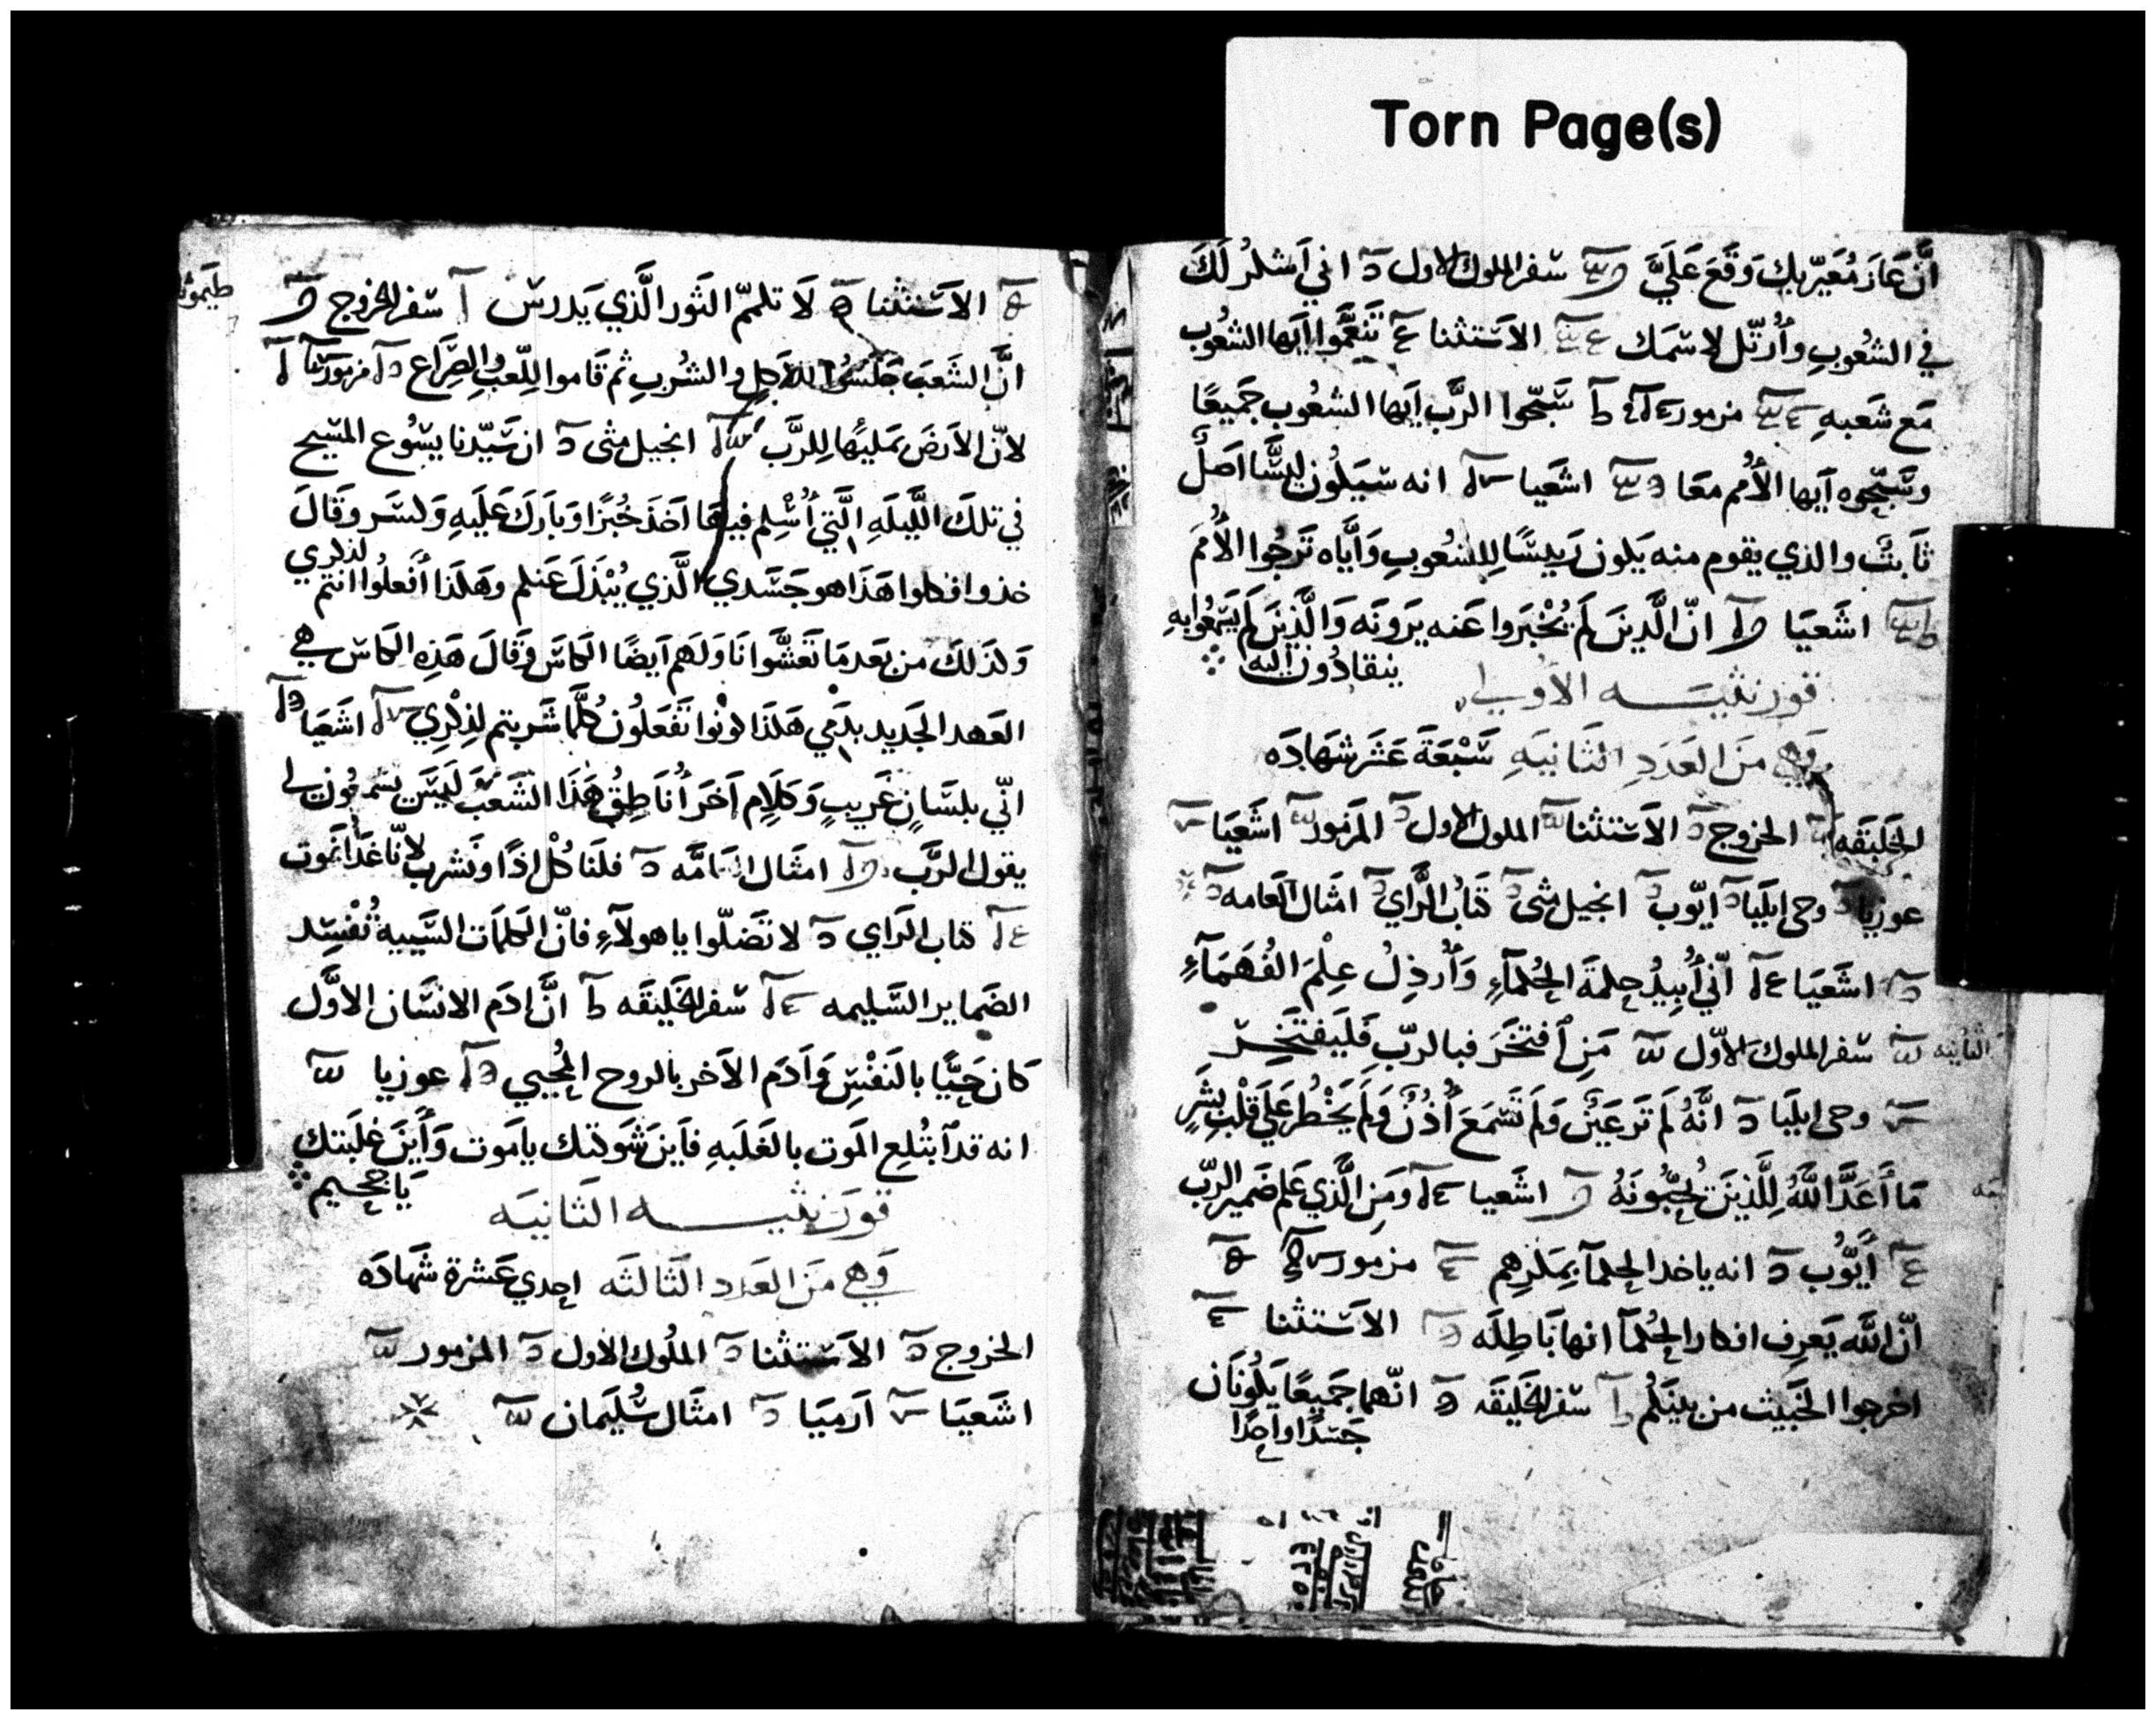 Torn Page(s)
أنّ عَارَ مُعَيّريكَ وَقَعَ عَلَيَّ سفر الملوك الاول اني أشكرُ لَكَ
في الشعُوبِ وأُرتّل لاسمَك الاَستثنا تَنَعَّموا ايَها الشعُوب
مَع شَعبهِ مزمور سَبّحوا الرَّب ايَها الشعُوب جَميعًا
وسَبّحوه اَيها الأُمم معَا اشعَيا انه سَيَكُون ليسَّا اَصلٌ
ثَابتٌ والذي يقوم منه يَكون رَييسًا للشعُوبِ وَاَيَّاه تَرجُوا الأُمَم
اشَعيَا انّ الَّذينَ لَم يُخْبَروا عَنه يَرَونَه وَالَّذينَ لَم يَسَمعُوا بهِ
ينقادُون اليه
قورنثيَــه الأولي
وَهي منَ العَدَدِ الثَانيَهِ سَبْعَةَ عَشَرَ شهَادَه
الخَليقَه الخروج الاَستثنا الملوك الاول المَزمور اشعَيَا
عوزيا وحي ايليَا ايّوب انجيل متى كتابُ الرَّاي امثال العامه
اشَعَيَا انّي أُبيدُ حِكمَةَ الحُكمَآءِ وَأُرذِلُ عِلْمَ الفُهَمَآءِ
الثانيه سفر الملوك الاوّل مَنِ اَفتَخَرَ فبالربِّ فَليَفتَخِر
وحي ايليَا انَّهُ لَم تَرَ عَيَنٌ وَلَم تَسمَعَ أُذُنٌ وَلَم يَخْطُر عَلَي قَلْبِ بشَرٍ
مَا أَعَدَّ اللَّهُ لِلَّذينَ يُحِبُّونَهُ اشَعيا ومَنِ الَّذي عَلم ضَمير الربّ
أيّوُب انه ياخد الحكمآ بمَكرِهم مزمور
انّ اللَّه يَعرِف افكار الحُكمآ انها بَاطِلَه الاَستثنا
اخرجوا الخَبيث من بينَكُم سفر الخليقَه انّهما جميعًا يَكُونَان
جَسَدًا واحِدًا
الاَستثنا لَا تكمّ الثَور الَّذي يَدرس سفر الخروج
انَّ الشَعبَ جَلَسُوا للاَكلِ والشُربِ ثم قَاموا لِلّعبِ والصِرَاع مزمور
لاَنّ الاَرضَ بمَليَها لِلرَّب انجيل متى ان سَيّدنا يسُوع المسَيح
في تلكَ اللَّيلَهِ الَّتي أُسْلِم فيهَا اَخَذَ خُبزًا وَبَارَكَ عَلَيهِ وَكسَر وقَالَ
خذوا فكلوا هَذَا هو جَسَدي الَّذي يُبْذَل عَنكم وهَكَذا أَفعلُوا انتم لذكري
وَكذلكَ من بَعد مَا تَعَشَّوا نَاوَلَهم اَيضًا الكَاسَ وَقَالَ هَذِهِ الكَاسَ هي
العَهد الجَديد بدَمي هَكَذَا كونُوا تَفعَلُون كُلَّما شَربتم لِذِكْرِي اشَعَيَا
انّي بلسَانٍ غَريبٍ وَكَلاِم اَخَرَ أُنَاطِقُ هَذَا الشَعبَ لَيسَ يَسمعُون لي
يقول الرَّب امثَال العَامَّه فلنَاكُلْ اذًا ونَشرب لاَنّا غَدًا نَموت
كتاب الرَاي لا تَضَلّوا يا هولآءِ فانّ الكلمَات السَييه تُفْسِد
الضَماير السَليمه سفر الخَليقَه انَّ ادَم الانسَان الاوَّل
كان حَيًّا بالنَفْسِ وَاَدَم الاَخر بالروح المحُيي عوزيا
انه قد اَبتُلع المَوت بالغَلَبَهِ فاَينَ شَوكتك يا مَوت وَأَينَ غلَبَتك
يَا جحيم
قورَنثيَــه الثَانيَه
وَهي منَ العَدد الثَالثَه احدي عَشرة شَهادَه
الخروج الاَستثنا الملُوك الاول المزمور
اشَعيَا اَرميَا امثَال سُليَمان